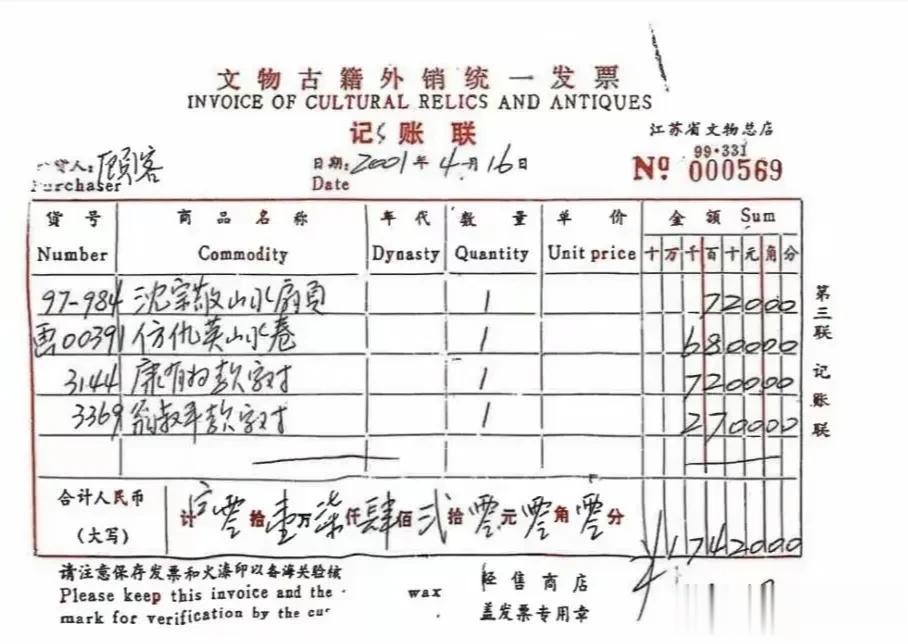 文物古籍外销统一发票
INVOICE OF CULTURAL RELICS AND ANTIQUES
记账联
江苏省文物总店
货人: 顾客
Purchaser
日期: 2001年4月16日
Date
99·331
No 000569
货号 商品名称 年代 数量 单价 金额 Sum
Number Commodity Dynasty Quantity Unit price 十万千百十元角分
97-984 沈宗敬山水扇页 1 72000
画00391 仿仇英山水卷 1 680000
3144 康有为款字对 1 720000
3369 翁叔平款字对 1 270000
合计人民币
(大写)
计 零拾壹万柒仟肆佰贰拾零元零角零分 ¥1742000
第三联 记账联
请注意保存发票和火漆印以备海关验核
Please keep this invoice and the wax
mark for verification by the cu
经售商店
盖发票专用章